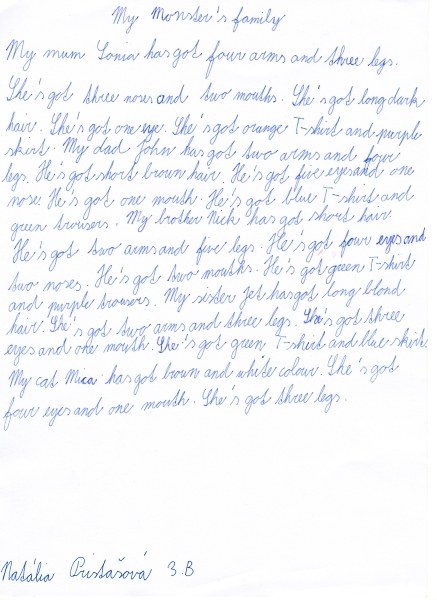 My Monster's family
My mum Sonia has got four arms and three legs.
She's got three noses and two mouths. She's got long dark
hair. She's got one eye. She's got orange T-shirt and purple
skirt. My dad John has got two arms and four
legs. He's got short brown hair. He's got five eyes and one
nose. He's got one mouth. He's got blue T-shirt and
green trousers. My brother Nick has got short hair.
He's got two arms and five legs. He's got four eyes and
two noses. He's got two mouths. He's got green T-shirt
and purple trousers. My sister Jet has got long blond
hair. She's got two arms and three legs. She's got three
eyes and one mouth. She's got green T-shirt and blue skirt.
My cat Mica has got brown and white colour. She's got
four eyes and one mouth. She's got three legs.
Natália Pristašová 3.B